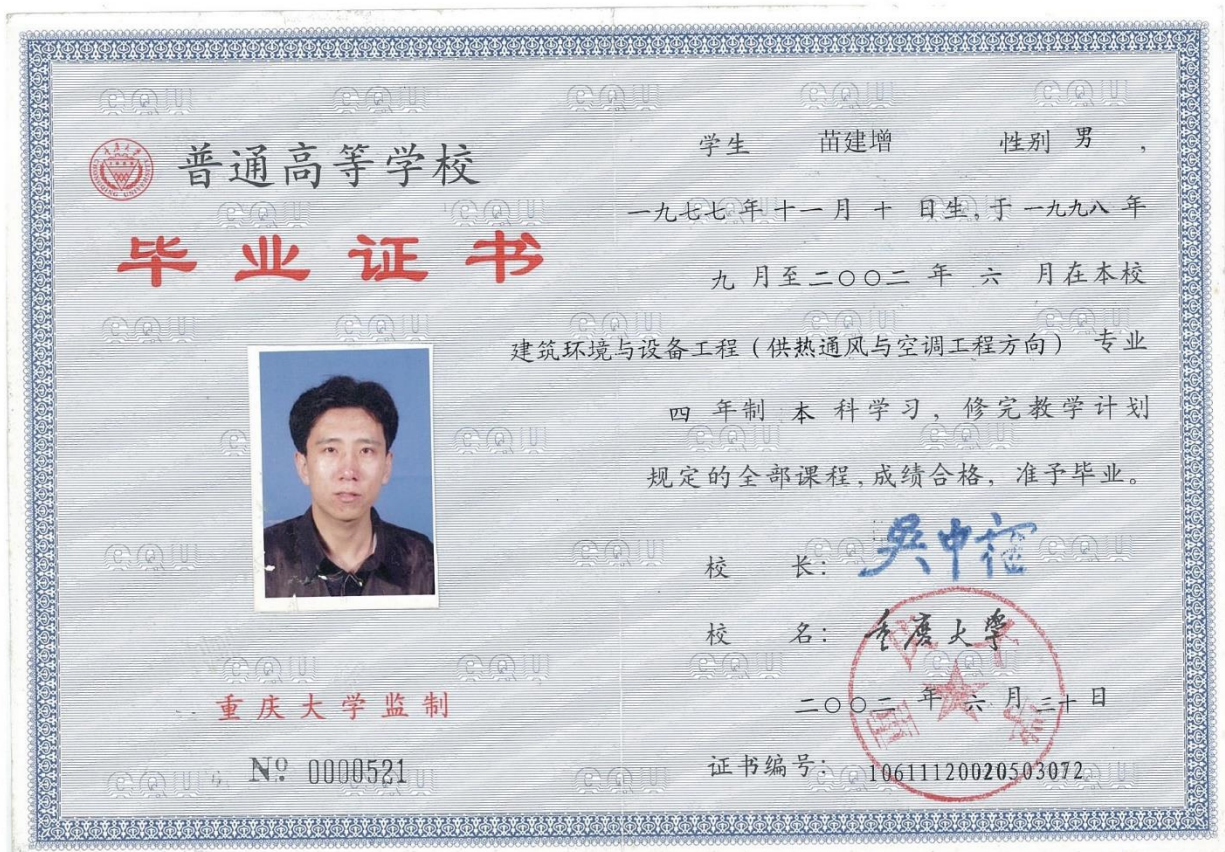 普通高等学校
毕业证书
重庆大学监制
Nº 0000521
学生 苗建增 性别 男 ,
一九七七 年 十一 月 十 日生,于 一九九八 年
九 月至二〇〇二 年 六 月在本校
建筑环境与设备工程(供热通风与空调工程方向) 专业
四 年制 本 科学习,修完教学计划
规定的全部课程,成绩合格,准予毕业。
校 长: 吴中福
校 名: 重庆大学
二〇〇二 年 六 月 三十 日
证书编号: 10611120020503072